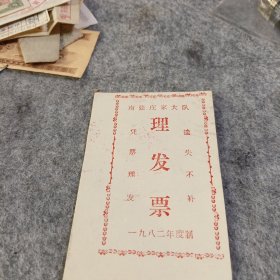 南张庄家大队
理发票
凭票理发
遗失不补
一九八二年度制